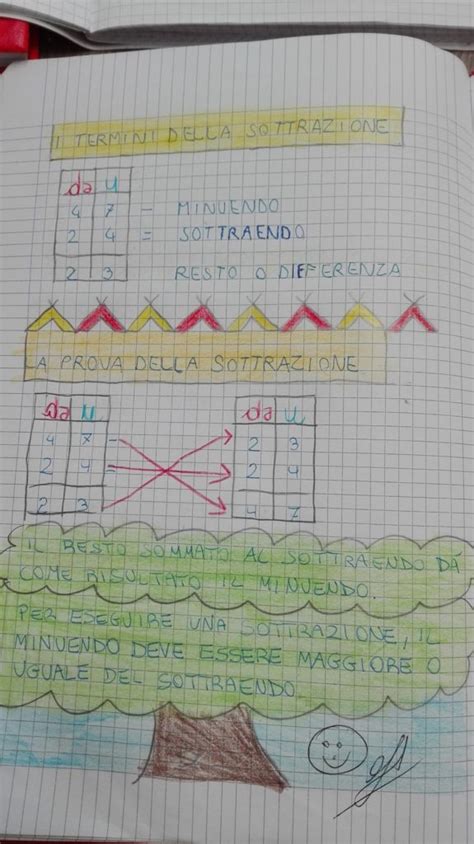 I TERMINI DELLA SOTTRAZIONE
da u
4 7 - MINUENDO
2 4 = SOTTRAENDO
2 3 RESTO O DIFFERENZA
LA PROVA DELLA SOTTRAZIONE
da u da u
4 7 - 2 3
2 4 = 2 4
2 3 4 7
IL RESTO SOMMATO AL SOTTRAENDO DÀ
COME RISULTATO IL MINUENDO.
PER ESEGUIRE UNA SOTTRAZIONE, IL
MINUENDO DEVE ESSERE MAGGIORE O
UGUALE DEL SOTTRAENDO.